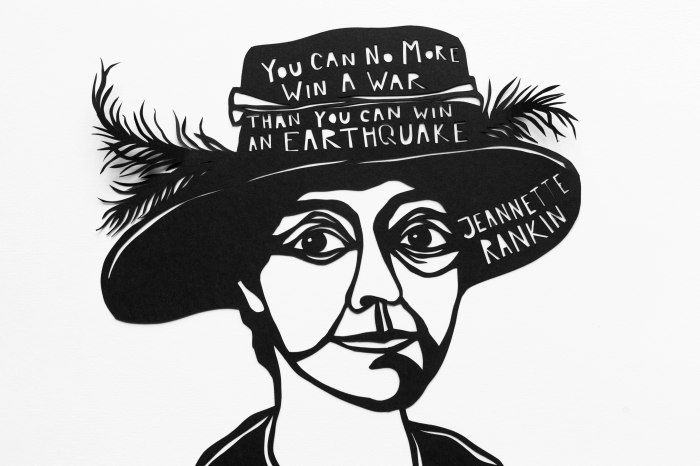 YOU CAN NO MORE
WIN A WAR
THAN YOU CAN WIN
AN EARTHQUAKE
JEANNETTE
RANKIN